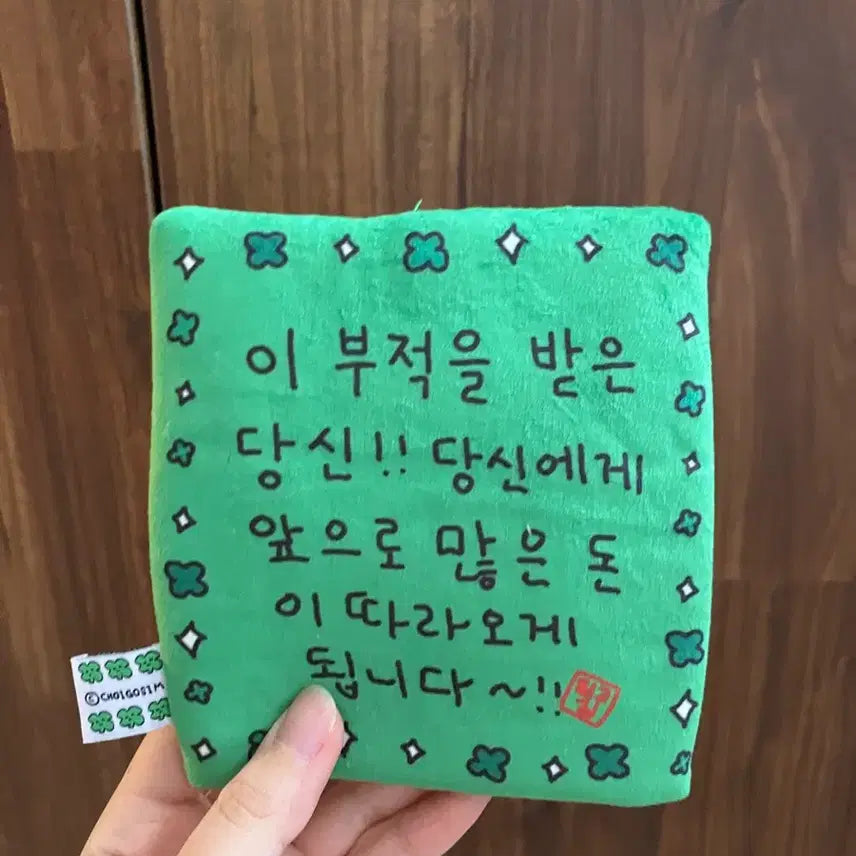 이 부적을 받은
당신!! 당신에게
앞으로 많은 돈
이 따라오게
됩니다~!!
©CHOIGOSIM